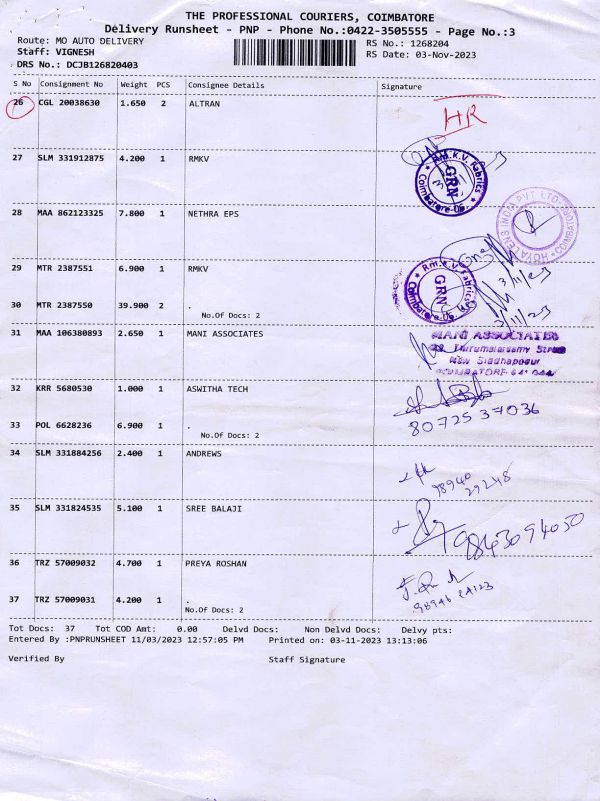 THE PROFESSIONAL COURIERS, COIMBATORE
Delivery Runsheet - PNP - Phone No.:0422-3505555 - Page No.:3
Route: MO AUTO DELIVERY
RS No.: 1268204
Staff: VIGNESH
RS Date: 03-Nov-2023
DRS No.: DCJB126820403
S No Consignment No Weight PCS Consignee Details Signature
26 CGL 20038630 1.650 2 ALTRAN
HR
27 SLM 331912875 4.200 1 RMKV
Rm.K.V. Fabrics
GRN
28 MAA 862123325 7.800 1 NETHRA EPS
29 MTR 2387551 6.900 1 RMKV
Rm.K.V. Fabrics
GRN
3/11/23
30 MTR 2387550 39.900 2 .
No.Of Docs: 2
3/11/23
31 MAA 106380893 2.650 1 MANI ASSOCIATES
MANI ASSOCIATES
32 KRR 5680530 1.000 1 ASWITHA TECH
8072537036
33 POL 6628236 6.900 1 .
No.Of Docs: 2
34 SLM 331884256 2.400 1 ANDREWS
98940
29248
35 SLM 331824535 5.100 1 SREE BALAJI
9843094050
36 TRZ 57009032 4.700 1 PREYA ROSHAN
37 TRZ 57009031 4.200 1 .
No.Of Docs: 2
Tot Docs: 37 Tot COD Amt: 0.00 Delvd Docs: Non Delvd Docs: Delvy pts:
Entered By :PNPRUNSHEET 11/03/2023 12:57:05 PM Printed on: 03-11-2023 13:13:06
Verified By Staff Signature